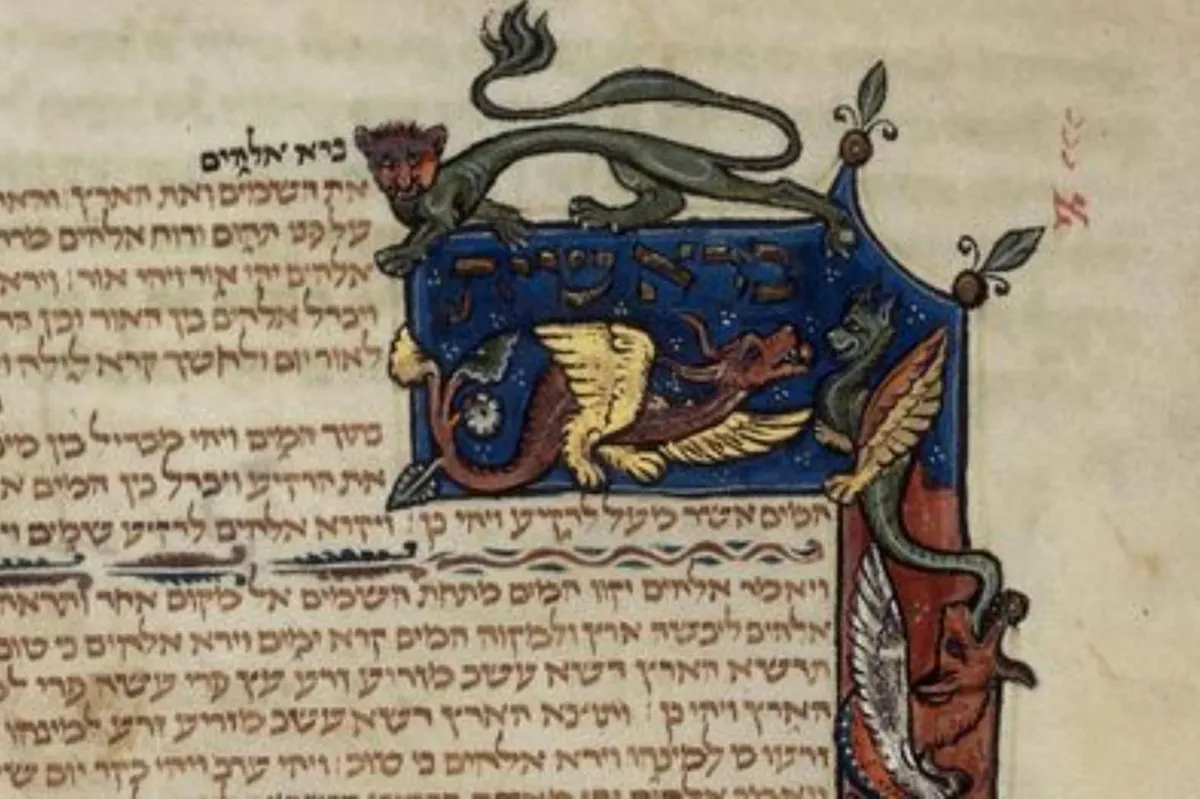 בראשית
ברא אלהים
את השמים ואת הארץ: והאר
על פני תהום ורוח אלהים מרח
אלהים יהי אור ויהי אור: וירא
ויבדל אלהים בין האור ובין הח
לאור יום ולחשך קרא לילה ו
בתוך המים ויהי מבדיל בין מים
את הרקיע ויבדל בין המים א
המים אשר מעל לרקיע ויהי כן: ויקרא אלהים לרקיע שמים וי
ויאמר אלהים יקוו המים מתחת השמים אל מקום אחד ותראה
אלהים ליבשה ארץ ולמקוה המים קרא ימים וירא אלהים כי טוב
תדשא הארץ דשא עשב מזריע זרע עץ פרי עשה פרי למ
הארץ ויהי כן: ותוצא הארץ דשא עשב מזריע זרע למינהו
זרעו בו למינהו וירא אלהים כי טוב: ויהי ערב ויהי בקר יום של